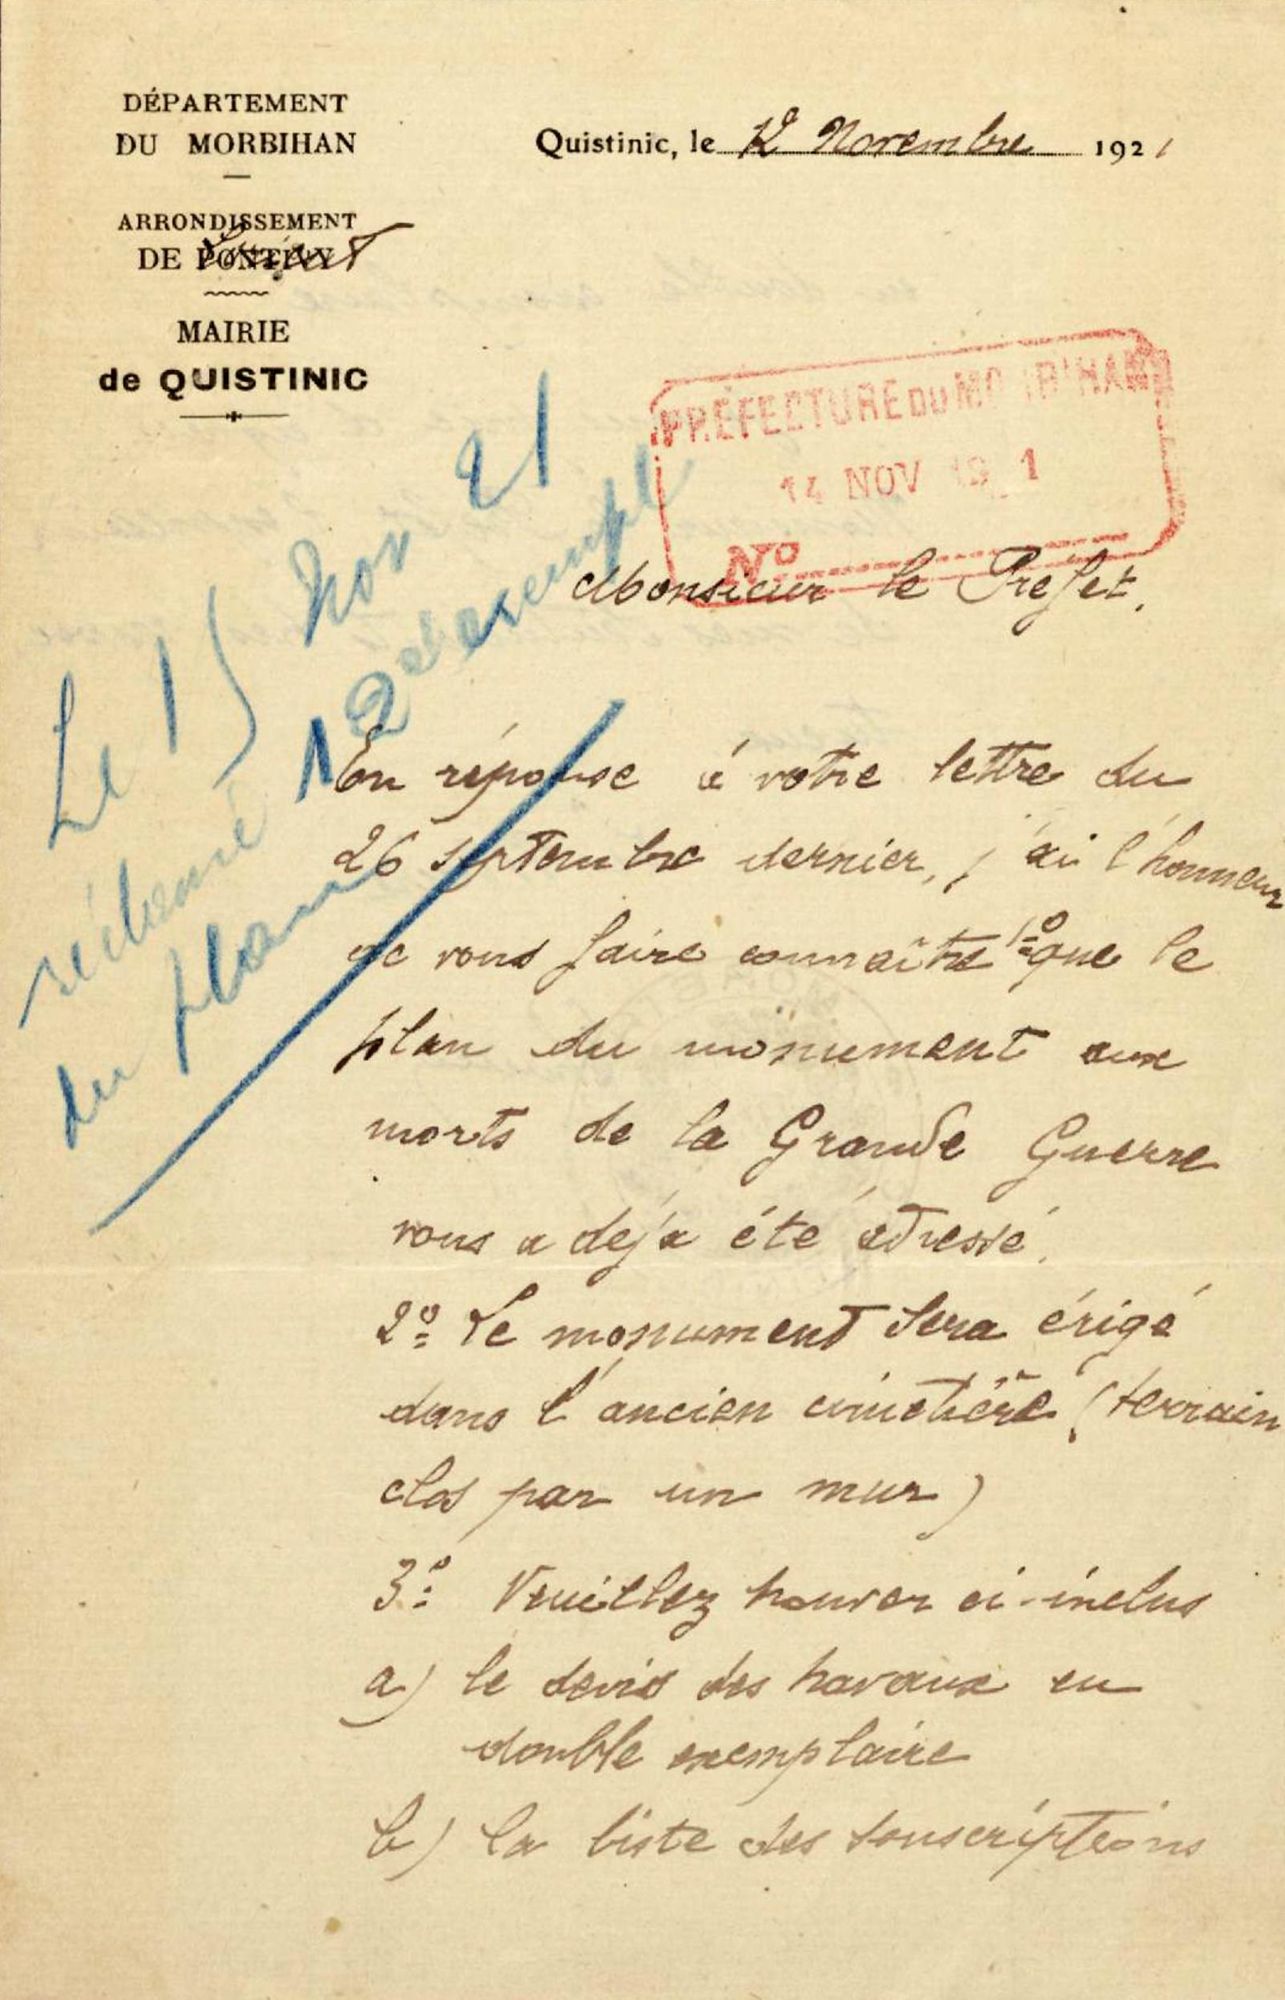 DÉPARTEMENT
DU MORBIHAN
ARRONDISSEMENT
DE PONTIVY Lorient
MAIRIE
de QUISTINIC
Quistinic, le 12 Novembre 1921
PRÉFECTURE DU MORBIHAN
14 NOV 19 1
No
Le 15 Nov 21
réclamé 1 2e exempl
du plan
Monsieur le Préfet,
En réponse à votre lettre du
26 septembre dernier, j'ai l'honneur
de vous faire connaître 1o que le
plan du monument aux
morts de la Grande Guerre
vous a déjà été adressé.
2o Le monument sera érigé
dans l'ancien cimetière (terrain
clos par un mur)
3o Veuillez trouver ci-inclus
a) le devis des travaux en
double exemplaire
b) la liste des souscriptions